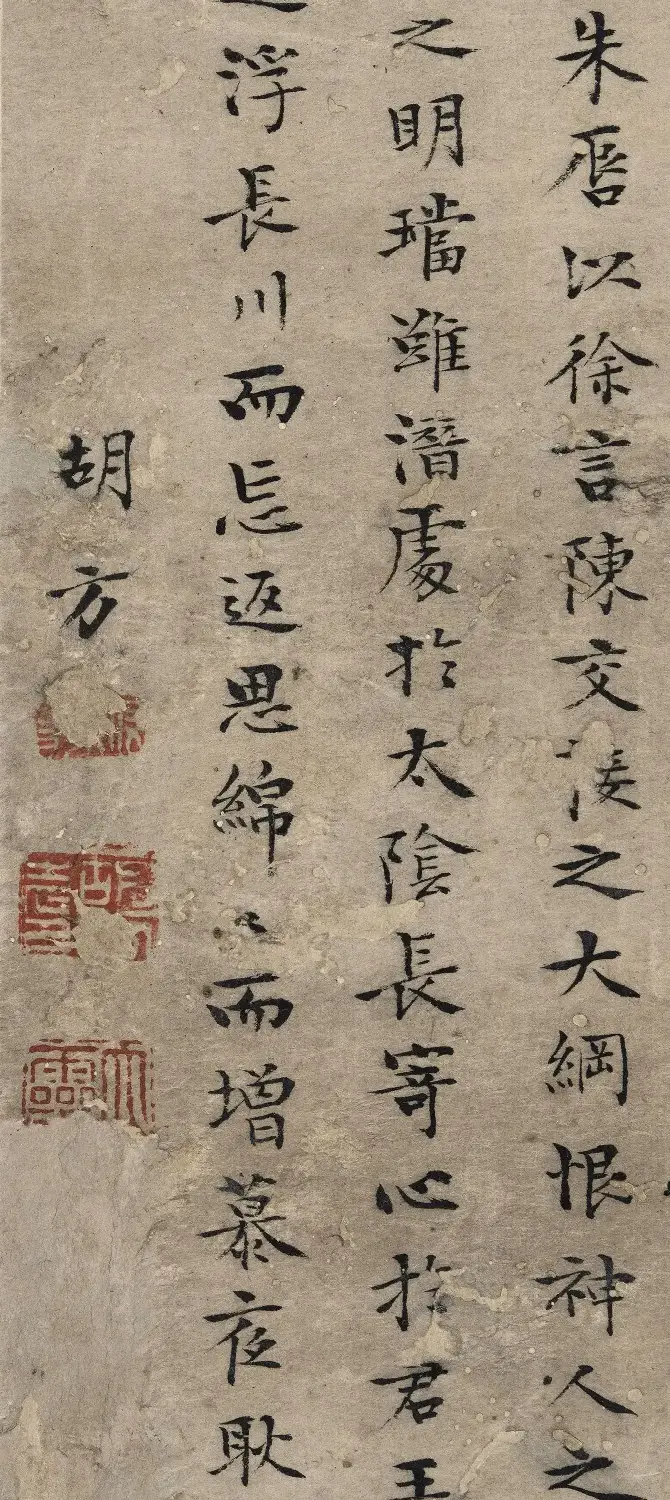 朱唇以徐言陳交接之大綱恨神人之
之明璫雖潛處於太陰長寄心於君王
浮長川而忘返思綿〻而增慕夜耿
胡方